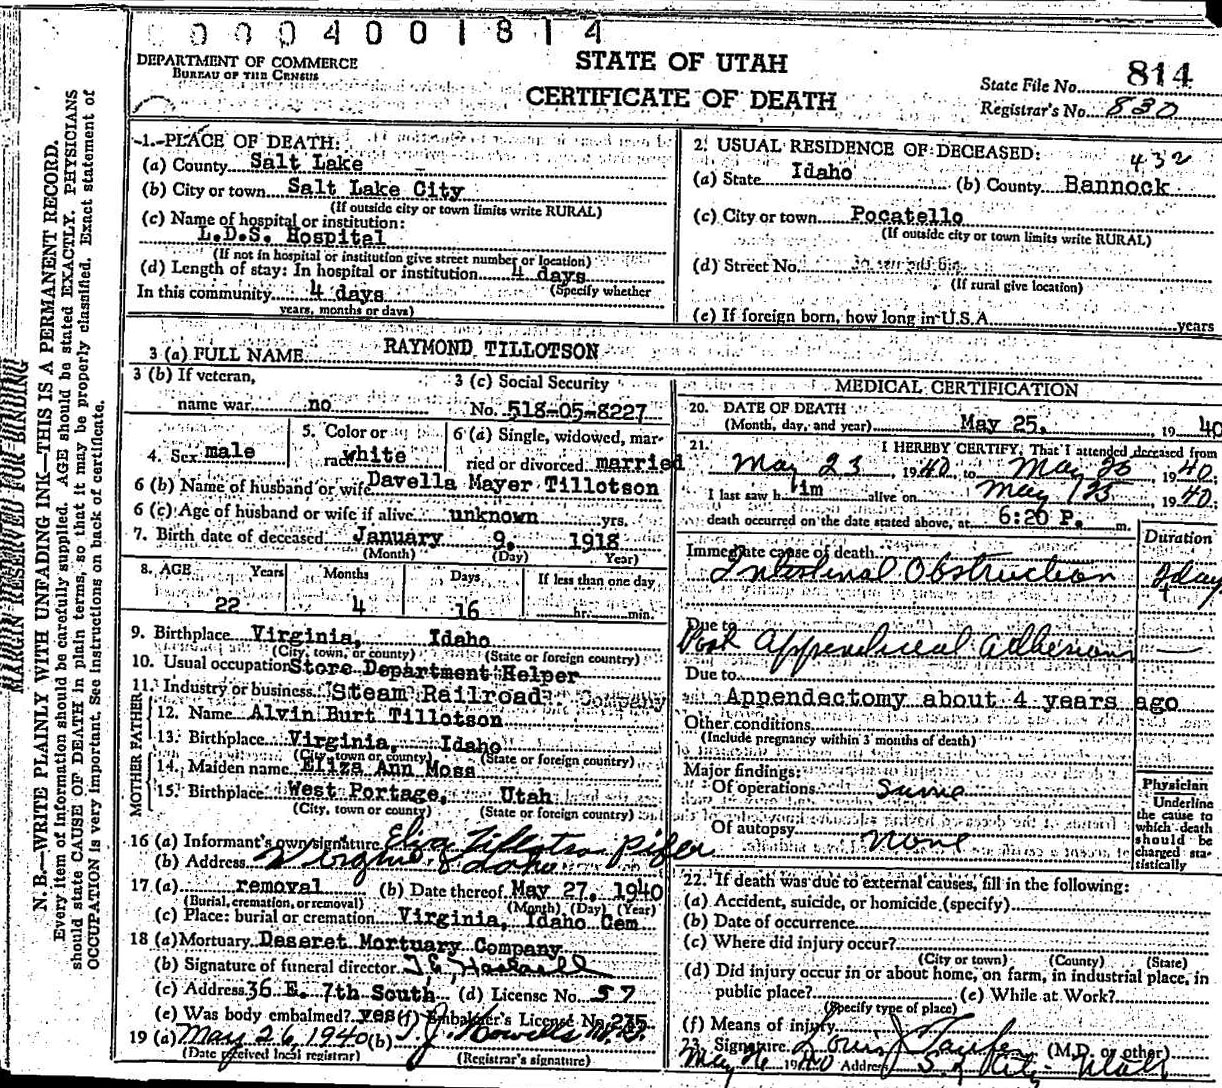 0 0 0 4 0 0 1 8 1 4
DEPARTMENT OF COMMERCE
BUREAU OF THE CENSUS
STATE OF UTAH
CERTIFICATE OF DEATH
State File No. 814
Registrar's No. 830
MARGIN RESERVED FOR BINDING
N. B.—WRITE PLAINLY WITH UNFADING INK—THIS IS A PERMANENT RECORD.
Every item of information should be carefully supplied. AGE should be stated EXACTLY. PHYSICIANS
should state CAUSE OF DEATH in plain terms, so that it may be properly classified. Exact statement of
OCCUPATION is very important. See instructions on back of certificate.
1. PLACE OF DEATH:
(a) County Salt Lake
(b) City or town Salt Lake City
(If outside city or town limits write RURAL)
(c) Name of hospital or institution:
L.D.S. Hospital
(If not in hospital or institution give street number or location)
(d) Length of stay: In hospital or institution 4 days
(Specify whether
In this community 4 days
years, months or days)
2. USUAL RESIDENCE OF DECEASED: 432
(a) State Idaho (b) County Bannock
(c) City or town Pocatello
(If outside city or town limits write RURAL)
(d) Street No.
(If rural give location)
(e) If foreign born, how long in U.S.A. years
3 (a) FULL NAME RAYMOND TILLOTSON
3 (b) If veteran,
name war no
3 (c) Social Security
No. 518-05-8227
4. Sex male
5. Color or
race white
6 (a) Single, widowed, mar-
ried or divorced married
6 (b) Name of husband or wife Davella Mayer Tillotson
6 (c) Age of husband or wife if alive unknown yrs.
7. Birth date of deceased January 9, 1918
(Month) (Day) Year)
8. AGE Years Months Days If less than one day
22 4 16 hr. min.
9. Birthplace Virginia, Idaho
(City, town, or county) (State or foreign country)
10. Usual occupation Store Department Helper
11. Industry or business Steam Railroad Company
FATHER
12. Name Alvin Burt Tillotson
13. Birthplace Virginia, Idaho
(City, town or county) (State or foreign country)
MOTHER
14. Maiden name Eliza Ann Moss
15. Birthplace West Portage, Utah
(City, town or county) (State or foreign country)
16 (a) Informant's own signature Eliza Tillotson Pifer
(b) Address Virginia Idaho
17 (a) removal (b) Date thereof May 27, 1940
(Burial, cremation, or removal) (Month) (Day) (Year)
(c) Place: burial or cremation Virginia, Idaho Cem
18 (a) Mortuary Deseret Mortuary Company
(b) Signature of funeral director
(c) Address 36 E. 7th South (d) License No. 57
(e) Was body embalmed? yes (f) Embalmer's License No. 235
19 (a) May 26, 1940 (b) T. J. Howells M.D.
(Date received local registrar) (Registrar's signature)
MEDICAL CERTIFICATION
20. DATE OF DEATH
(Month, day, and year) May 25, 19 40
21. I HEREBY CERTIFY, That I attended deceased from
May 23 1940, to May 25, 1940;
I last saw h im alive on May 25 1940;
death occurred on the date stated above, at 6:20 P. m.
Duration
Immediate cause of death
Intestinal Obstruction 2 days
Due to
Post Appendiceal Adhesions
Due to
Appendectomy about 4 years ago
Other conditions
(Include pregnancy within 3 months of death)
Major findings:
Of operations Same
Of autopsy None
Physician
Underline
the cause to
which death
should be
charged sta-
tistically
22. If death was due to external causes, fill in the following:
(a) Accident, suicide, or homicide (specify)
(b) Date of occurrence
(c) Where did injury occur?
(City or town) (County) (State)
(d) Did injury occur in or about home, on farm, in industrial place, in
public place? (e) While at Work?
(Specify type of place)
(f) Means of injury
23. Signature Louis J Taufer (M.D. or other)
May 26 1940 Address S. L. City Utah